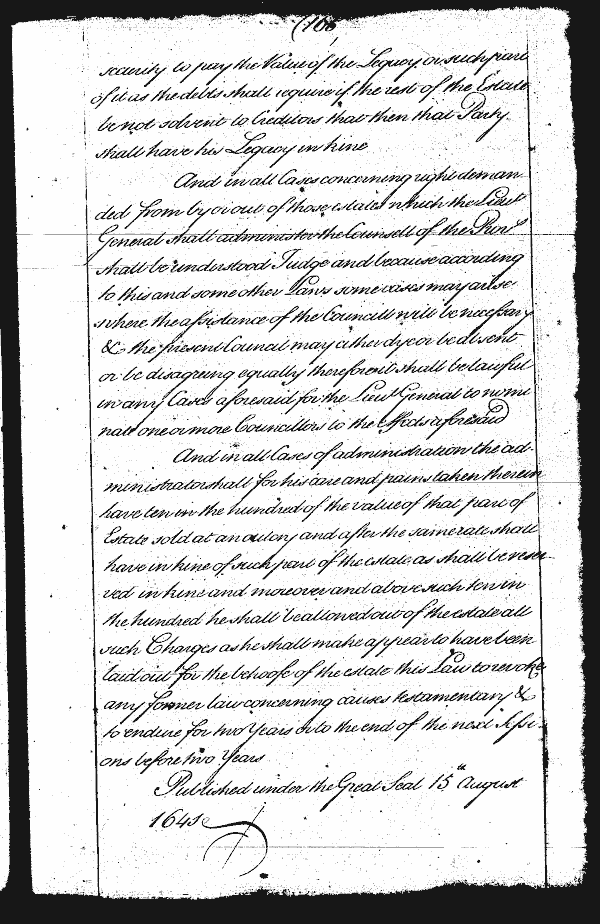 (106
security to pay the Value of the Legacy or such part
of it as the debts shall require if the rest of the Estate
be not solvent to Creditors that then that Party
shall have his Legacy in kine
And in all Cases concerning right deman
ded from by or out of those estates which the Lieut
General shall administer the Counsell of the Provl
shall be understood Judge and because according
to this and some other Laws some cases may arise
where the assistance of the Councill will be necessary
& the present Council may either dye or be absent
or be disagreing equally therefore it shall be lawful
in any Cases aforesaid for the Lieut General to nomi
nate one or more Councillors to the effects aforesaid
And in all Cases of administration the ad-
ministrator shall for his care and pains taken therein
have ten in the hundred of the value of that part of
Estate sold at an outcry and after the same rate shall
have in kine of such part of the estate as shall be reser
ved in kine and moreover and above such ten in
the hundred he shall be allowed out of the estate all
such Charges as he shall make appear to have been
laid out for the behoofe of the estate this Law to revoke
any former law concerning causes testamentary &
to endure for two Years or to the end of the next Sessi-
ons before two Years
Published under the Great Seal 15th August